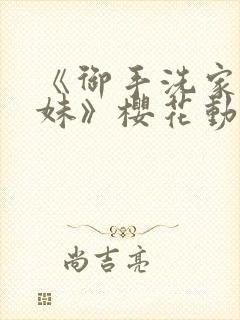 《御手洗家
妹》櫻花動
尚吉亮